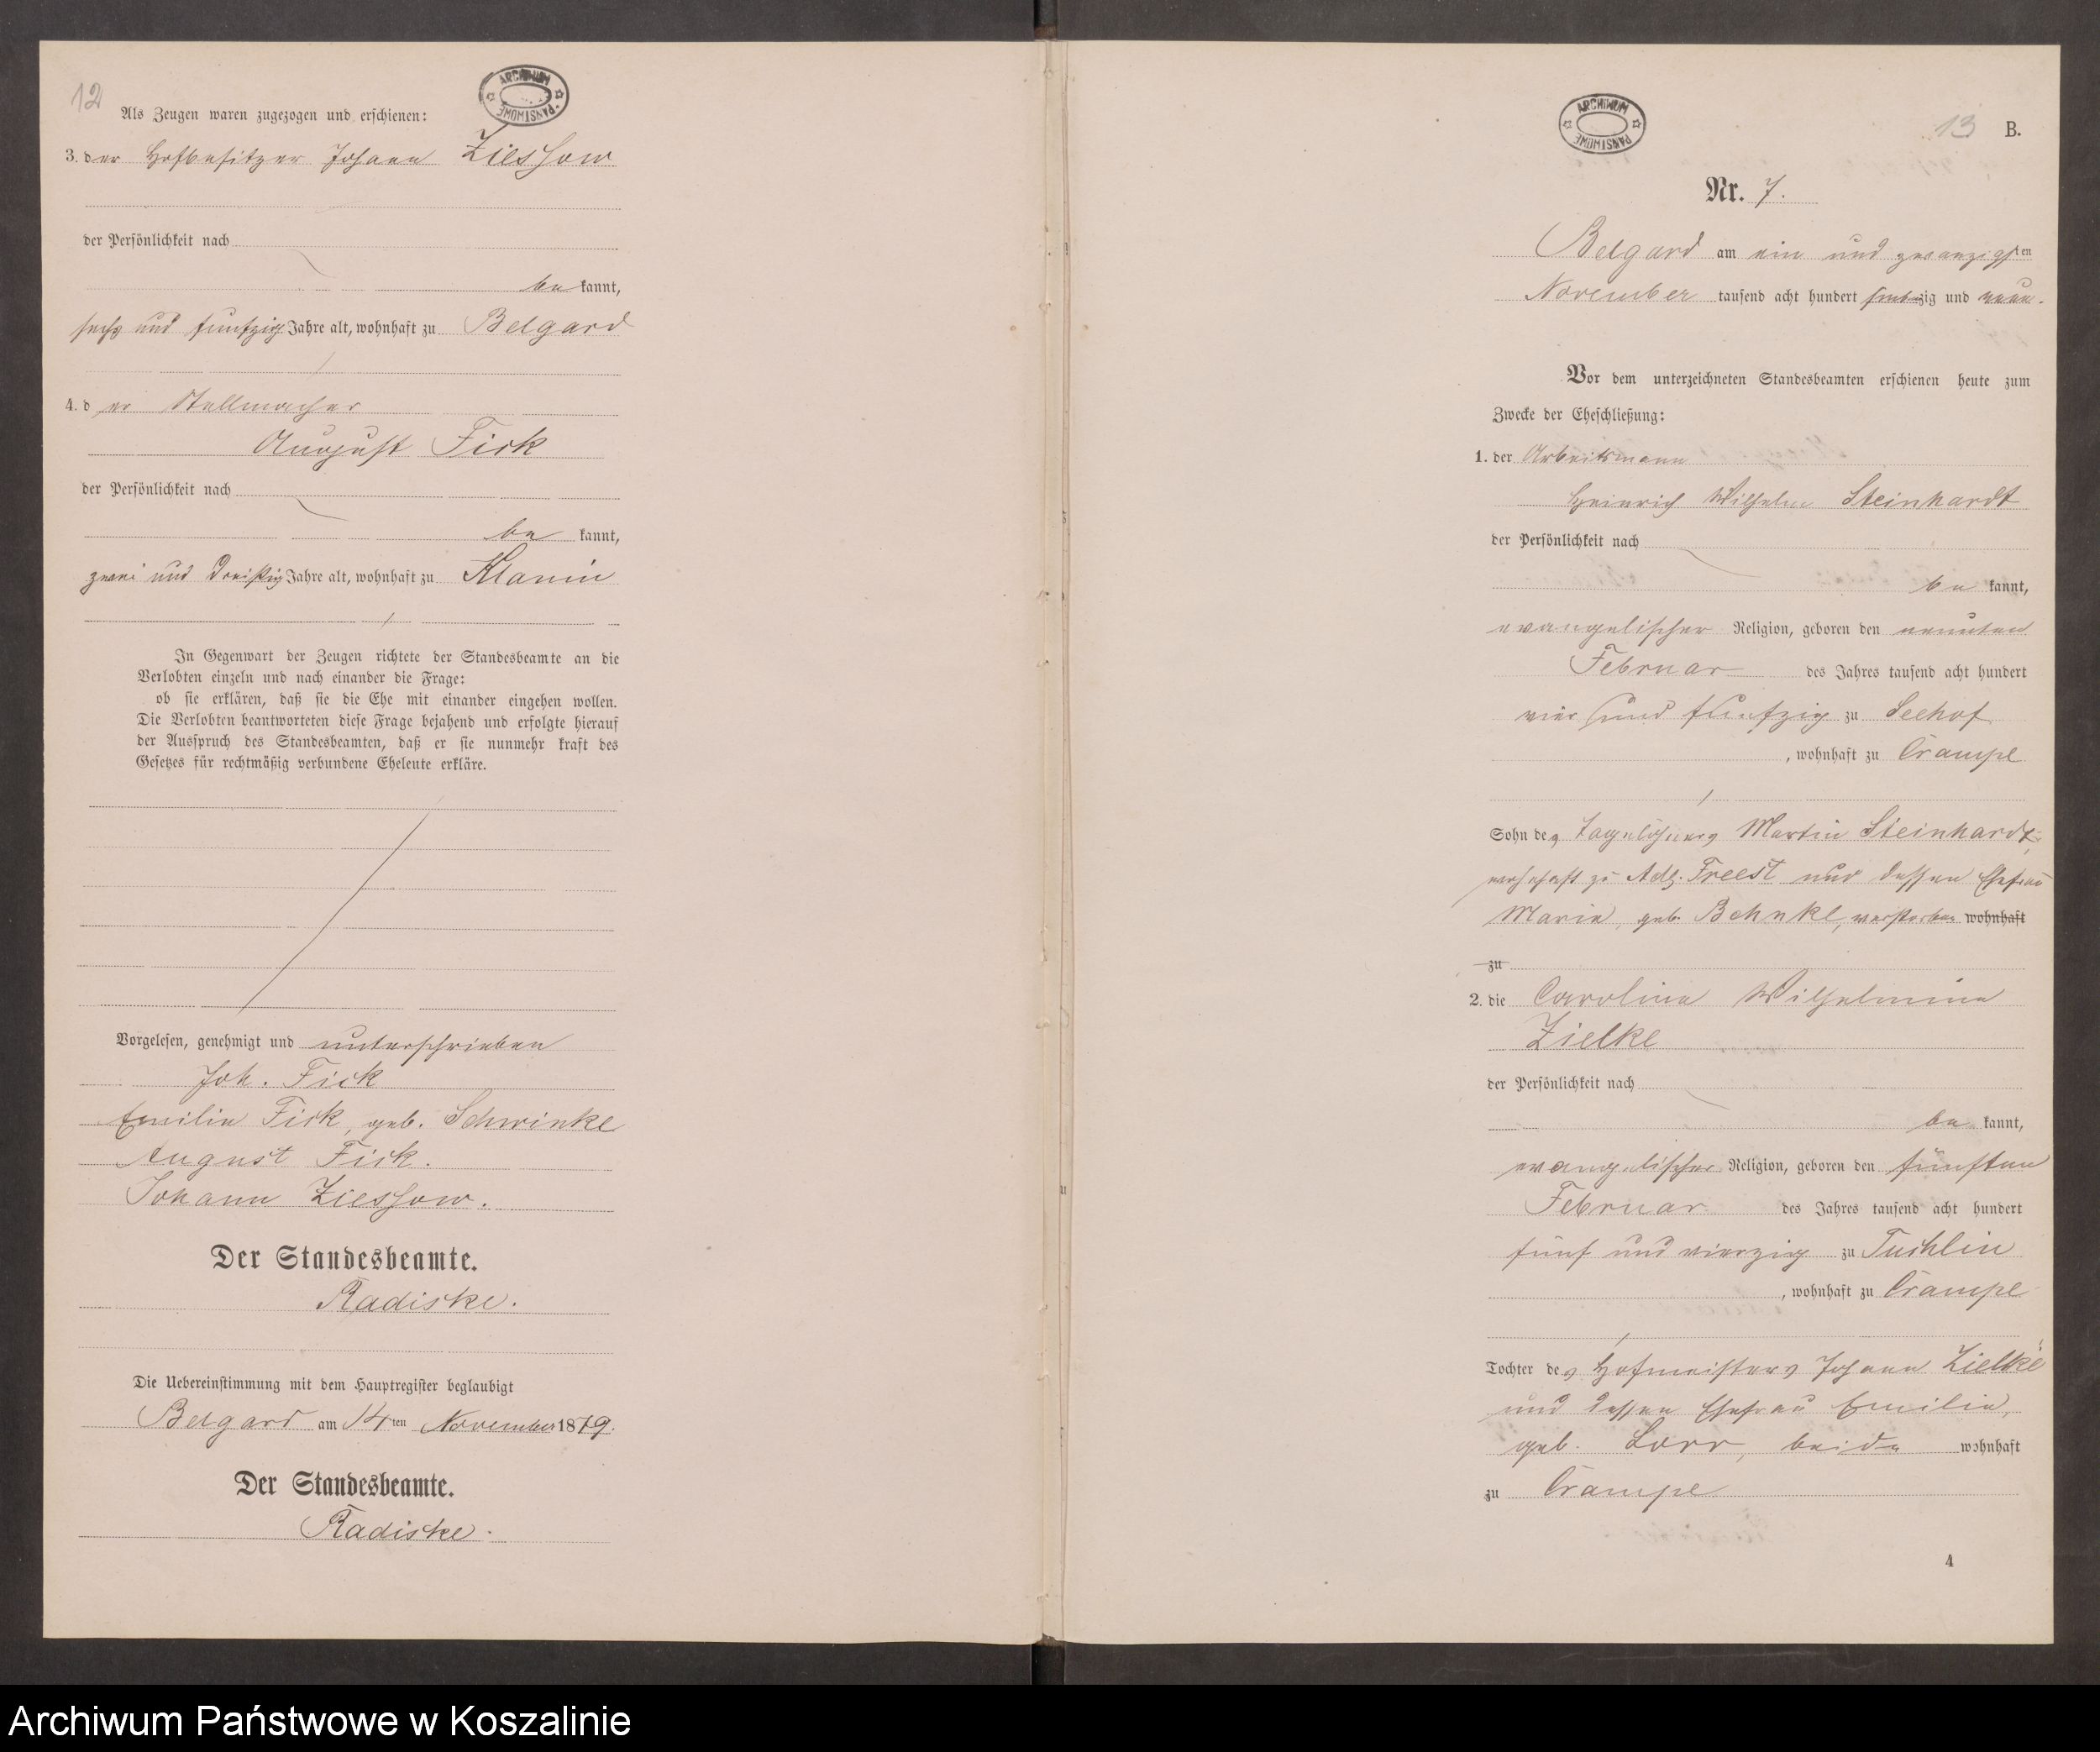 12
ARCHIWUM PAŃSTWOWE
Als Zeugen waren zugezogen und erschienen:
3. der Hofbesitzer Johann Ziessow
der Persönlichkeit nach
be kannt,
sechs und funfzig Jahre alt, wohnhaft zu Belgard
4. d er Stellmacher
August Fick
der Persönlichkeit nach
be kannt,
zwei und dreißig Jahre alt, wohnhaft zu Klanin
In Gegenwart der Zeugen richtete der Standesbeamte an die
Verlobten einzeln und nach einander die Frage:
ob sie erklären, daß sie die Ehe mit einander eingehen wollen.
Die Verlobten beantworteten diese Frage bejahend und erfolgte hierauf
der Ausspruch des Standesbeamten, daß er sie nunmehr kraft des
Gesetzes für rechtmäßig verbundene Eheleute erkläre.
Vorgelesen, genehmigt und unterschrieben
Joh. Fick
Emilie Fick, geb. Schwinke
August Fick.
Johann Ziessow.
Der Standesbeamte.
Radiske.
Die Uebereinstimmung mit dem Hauptregister beglaubigt
Belgard am 14ten November 1879.
Der Standesbeamte.
Radiske.
ARCHIWUM PAŃSTWOWE
13 B.
Nr. 7.
Belgard am ein und zwanzigsten
November tausend acht hundert siebenzig und neun.
Vor dem unterzeichneten Standesbeamten erschienen heute zum
Zwecke der Eheschließung:
1. der Arbeitsmann
Heinrich Wilhelm Steinhardt
der Persönlichkeit nach
be kannt,
evangelischer Religion, geboren den neunten
Februar des Jahres tausend acht hundert
vier und funfzig zu Seehof
, wohnhaft zu Crampe
Sohn des Tagelöhners Martin Steinhardt,
wohnhaft zu Adl. Freest und dessen Ehefrau
Marie, geb. Behnke, verstorben wohnhaft
zu
2. die Caroline Wilhelmine
Zielke
der Persönlichkeit nach
be kannt,
evangelischer Religion, geboren den fünften
Februar des Jahres tausend acht hundert
fünf und vierzig zu Tuchlin
, wohnhaft zu Crampe
Tochter des Hofmeisters Johann Zielke
und dessen Ehefrau Emilie,
geb. Lorr, beide wohnhaft
zu Crampe
4
Archiwum Państwowe w Koszalinie